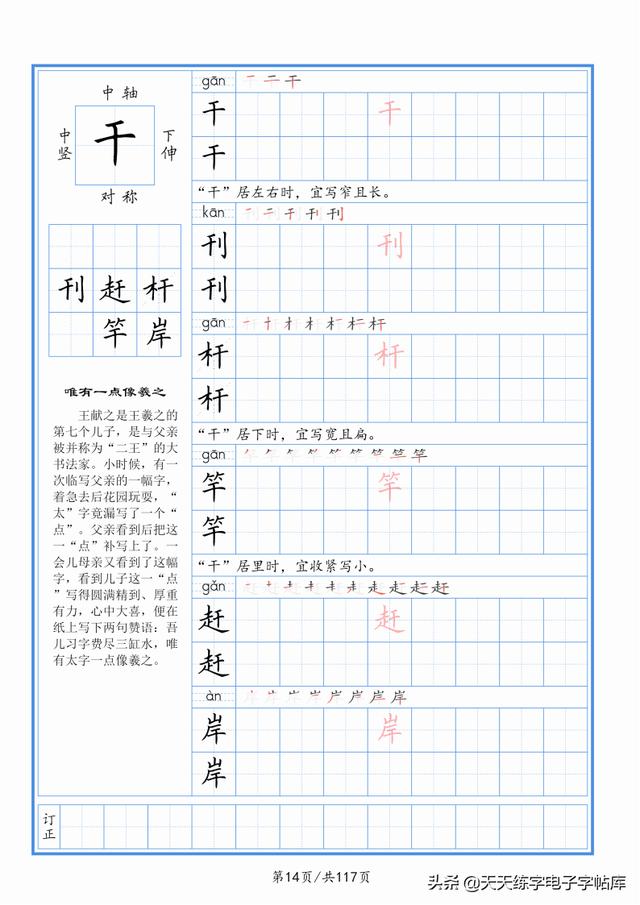 中轴
中竖
干
下伸
对称
刊赶杆
竿岸
唯有一点像羲之
王献之是王羲之的
第七个儿子，是与父亲
被并称为“二王”的大
书法家。小时候，有一
次临写父亲的一幅字，
着急去后花园玩耍，“
太”字竟漏写了一个“
点”。父亲看到后把这
一“点”补写上了。一
会儿母亲又看到了这幅
字，看到儿子这一“点
”写得圆满精到、厚重
有力，心中大喜，便在
纸上写下两句赞语：吾
儿习字费尽三缸水，唯
有太字一点像羲之。
gān
干 干
干
“干”居左右时，宜写窄且长。
kān
刊 刊
刊
gān
杆 杆
杆
“干”居下时，宜写宽且扁。
gān
竿 竿
竿
“干”居里时，宜收紧写小。
gǎn
赶 赶
赶
àn
岸 岸
岸
订正
第14页/共117页
头条 @天天练字电子字帖库